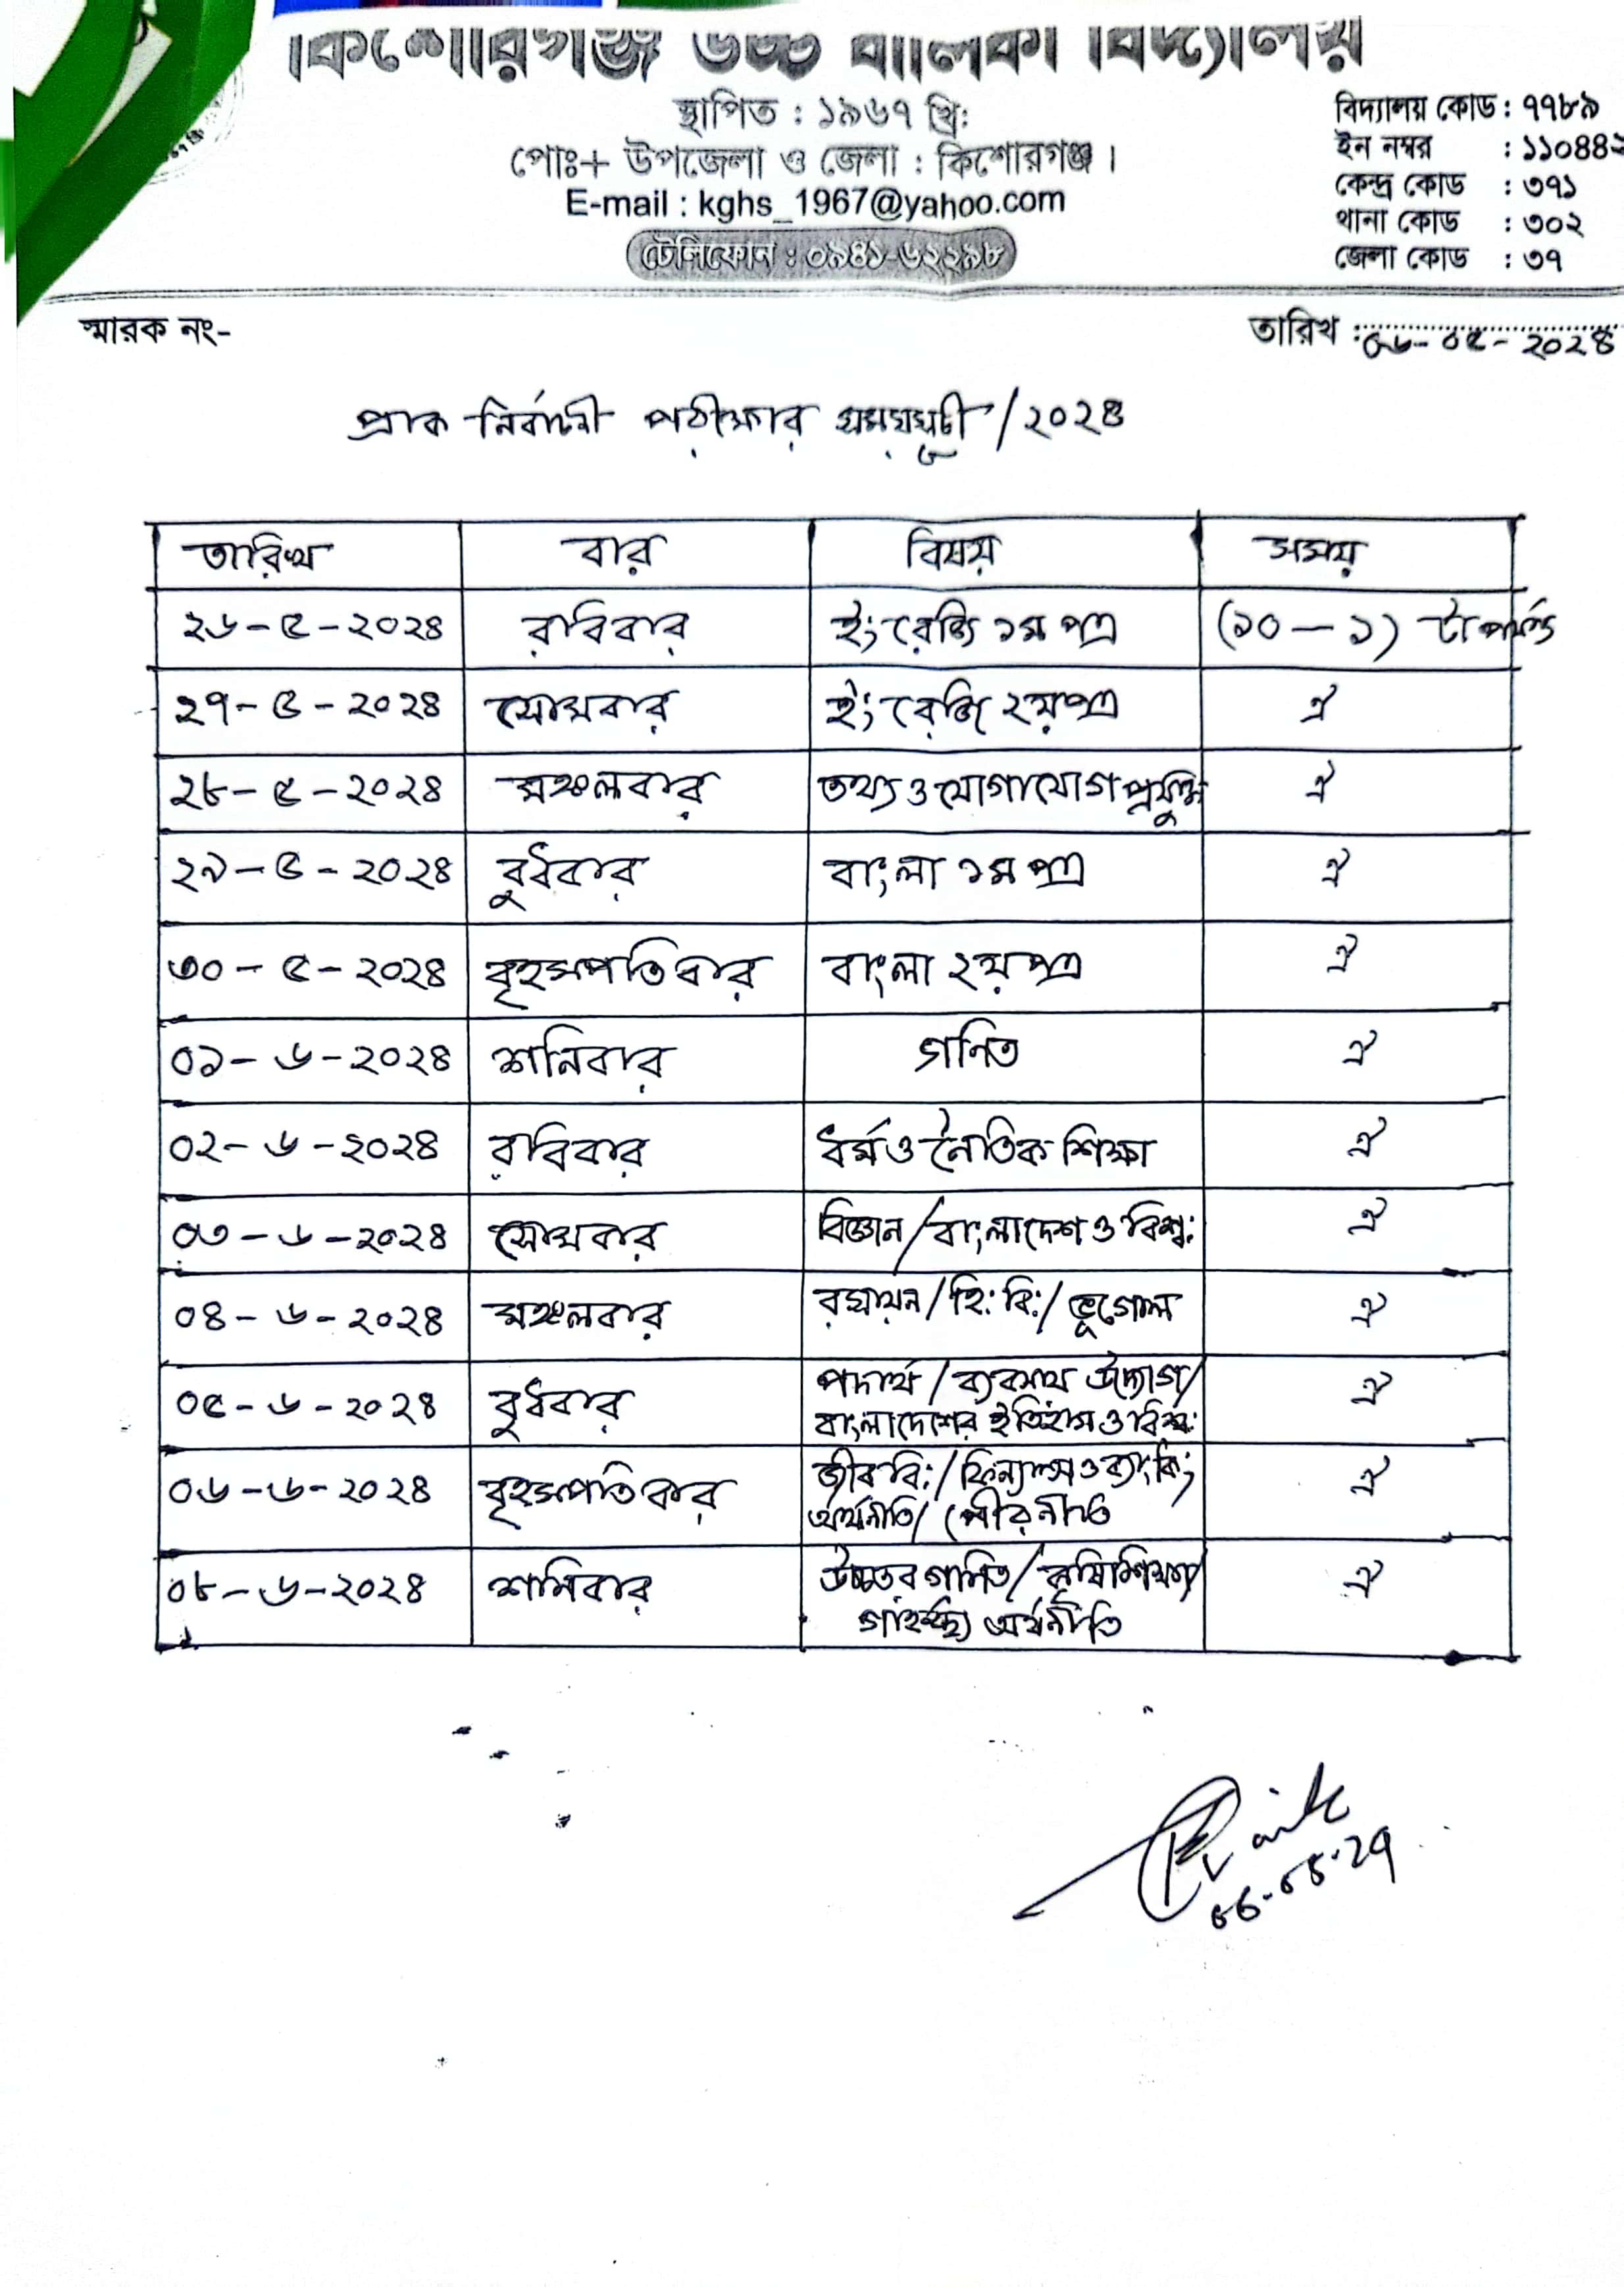 কিশোরগঞ্জ উচ্চ বালিকা বিদ্যালয়
স্থাপিত : ১৯৬৭ খ্রি:
পোঃ+ উপজেলা ও জেলা : কিশোরগঞ্জ।
E-mail : kghs_1967@yahoo.com
টেলিফোন : ০৯৪১-৬২২৯৮
বিদ্যালয় কোড : ৭৭৮৯
ইন নম্বর : ১১০৪৪২
কেন্দ্র কোড : ৩৭১
থানা কোড : ৩০২
জেলা কোড : ৩৭
স্মারক নং-
তারিখ : ০৬-০৫-২০২৪
প্রাক নির্বাচনী পরীক্ষার সময়সূচী/২০২৪
তারিখ বার বিষয় সময়
২৬-৫-২০২৪ রবিবার ইংরেজি ১ম পত্র (১০-১) টা পর্যন্ত
২৭-৫-২০২৪ সোমবার ইংরেজি ২য় পত্র ঐ
২৮-৫-২০২৪ মঙ্গলবার তথ্য ও যোগাযোগ প্রযুক্তি ঐ
২৯-৫-২০২৪ বুধবার বাংলা ১ম পত্র ঐ
৩০-৫-২০২৪ বৃহসপতিবার বাংলা ২য় পত্র ঐ
০১-৬-২০২৪ শনিবার গনিত ঐ
০২-৬-২০২৪ রবিবার ধর্ম ও নৈতিক শিক্ষা ঐ
০৩-৬-২০২৪ সোমবার বিজ্ঞান/বাংলাদেশ ও বিশ্ব: ঐ
০৪-৬-২০২৪ মঙ্গলবার রসায়ন/হি: বি:/ভূগোল ঐ
০৫-৬-২০২৪ বুধবার পদার্থ/ব্যবসায় উদ্যোগ/ ঐ
বাংলাদেশের ইতিহাস ও বিশ্ব:
০৬-৬-২০২৪ বৃহসপতিবার জীব বি:/ফিন্যান্স ও ব্যাংকিং ঐ
অর্থনীতি/পৌরনীতি
০৮-৬-২০২৪ শনিবার উচ্চতর গনিত/কৃষিশিক্ষা/ ঐ
গার্হস্থ্য অর্থনীতি